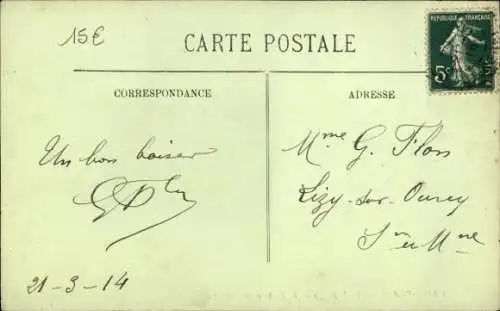 15€
CARTE POSTALE
REPUBLIQUE FRANÇAISE
5c
CORRESPONDANCE
ADRESSE
Un bon baiser
21-3-14
Mme G. Flon
Lizy-sur-Ourcq
S. et Mne